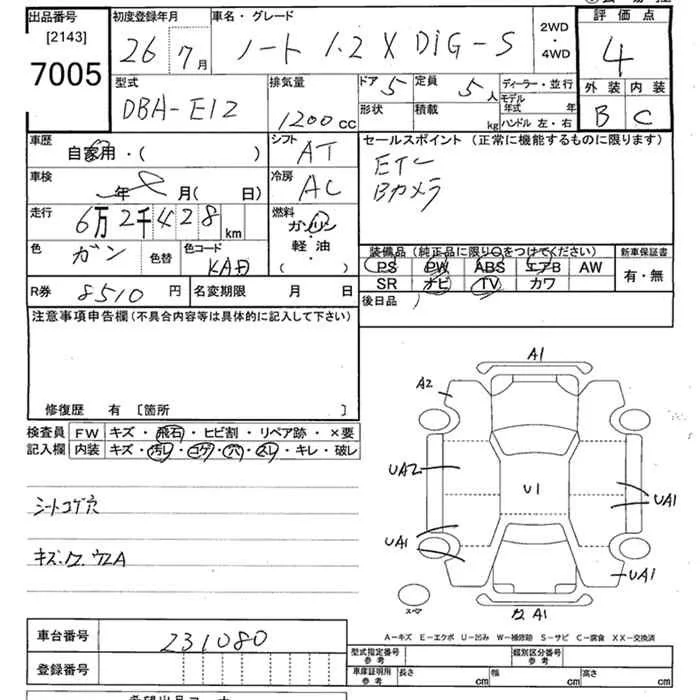 出品番号 初度登録年月 車名・グレード 2WD ・ 4WD 評価点
[2143]
7005 26 7月 ノート 1.2 X DIG-S 4
型式 排気量 ドア 5 定員 5人 ディーラー・並行 外装 内装
DBA-E12 1200cc 形状 積載 kg モデル年式 年 ハンドル 左・右 B C
車歴 自家用・( ) シフト AT セールスポイント (正常に機能するものに限ります)
車検 年 月( 日) 冷房 AC ETC
Bカメラ
走行 6万2千428km 燃料 ガソリン
軽油・
( )
色 ガン 色替 色コード KAD
装備品 (純正品に限り○をつけてください) 新車保証書
PS PW ABS エアB AW 有・無
SR ナビ TV カワ
R券 8510円 名変期限 月 日 後日品
注意事項申告欄 (不具合内容等は具体的に記入して下さい)
修復歴 有 [箇所 ]
検査員 FW キズ・飛石・ヒビ割・リペア跡・×要
記入欄 内装 キズ・汚レ・コゲ・穴・スレ・キレ・破レ
シートコゲ穴
A1
A2
UA2
U1
UA1
UA1
UA1
スペア
A1
A-キズ E-エクボ U-凹み W-補修跡 S-サビ C-腐食 XX-交換済
車台番号 231080
登録番号
型式指定番号 参考 類別区分番号 参考
車庫証明用 参考 長さ cm 幅 cm 高さ cm